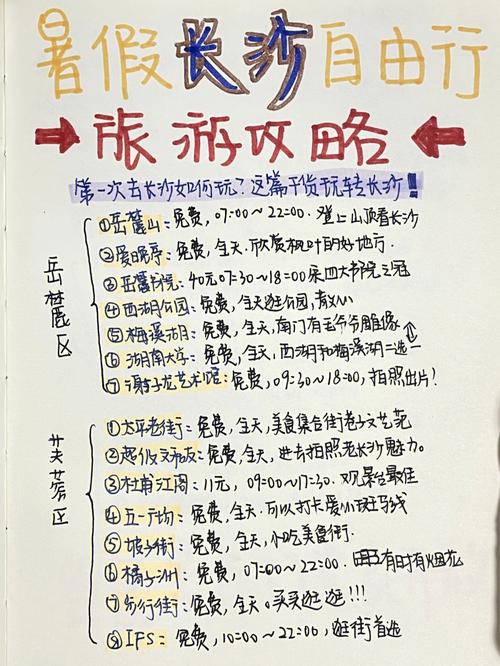 暑假长沙自由行
旅游攻略
第一次去长沙如何玩?这篇干货玩转长沙!!
岳麓区
①岳麓山:免费,07:00~22:00.登上山顶看长沙
②爱晚亭:免费,全天.欣赏枫叶的好地方.
③岳麓书院:40元07:30~18:00 四大书院之冠
④西湖公园:免费,全天逛公园,散心
⑤梅溪湖:免费,全天,南门有毛爷爷雕像
⑥湖南大学:免费,全天,西湖和梅溪湖二选一
⑦谢子龙艺术馆:免费,09:30~18:00,拍照出片!
芙蓉区
①太平老街:免费,全天,美食集合街巷子文艺范
②超级文和友:免费,全天,进去拍照老长沙魅力。
③杜甫江阁:11元,09:00~17:30.观景台最佳
④五一广场:免费,全天.可以打卡爱心斑马线
⑤坡子街:免费,全天,小吃美食街.
⑥橘子洲:免费,07:00~22:00.有时有烟花
⑦步行街:免费,全天。买买逛逛!!!
⑧IFS:免费,10:00~22:00,逛街首选